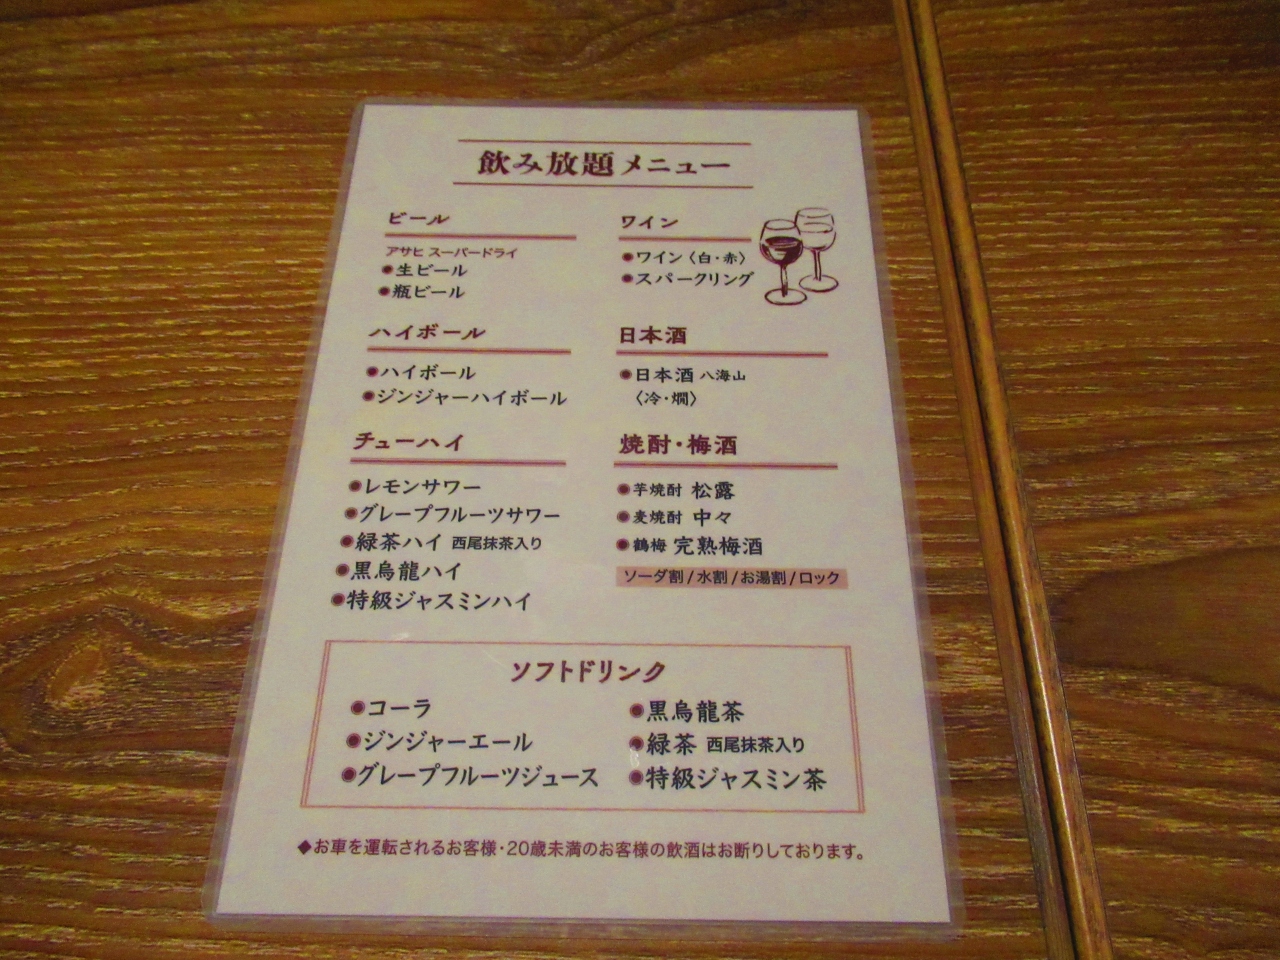 飲み放題メニュー
ビール
アサヒ スーパードライ
●生ビール
●瓶ビール
ハイボール
●ハイボール
●ジンジャーハイボール
チューハイ
●レモンサワー
●グレープフルーツサワー
●緑茶ハイ 西尾抹茶入り
●黒烏龍ハイ
●特級ジャスミンハイ
ワイン
●ワイン〈白・赤〉
●スパークリング
日本酒
●日本酒 八海山
〈冷・燗〉
焼酎・梅酒
●芋焼酎 松露
●麦焼酎 中々
●鶴梅 完熟梅酒
ソーダ割/水割/お湯割/ロック
ソフトドリンク
●コーラ
●ジンジャーエール
●グレープフルーツジュース
●黒烏龍茶
●緑茶 西尾抹茶入り
●特級ジャスミン茶
◆お車を運転されるお客様・20歳未満のお客様の飲酒はお断りしております。